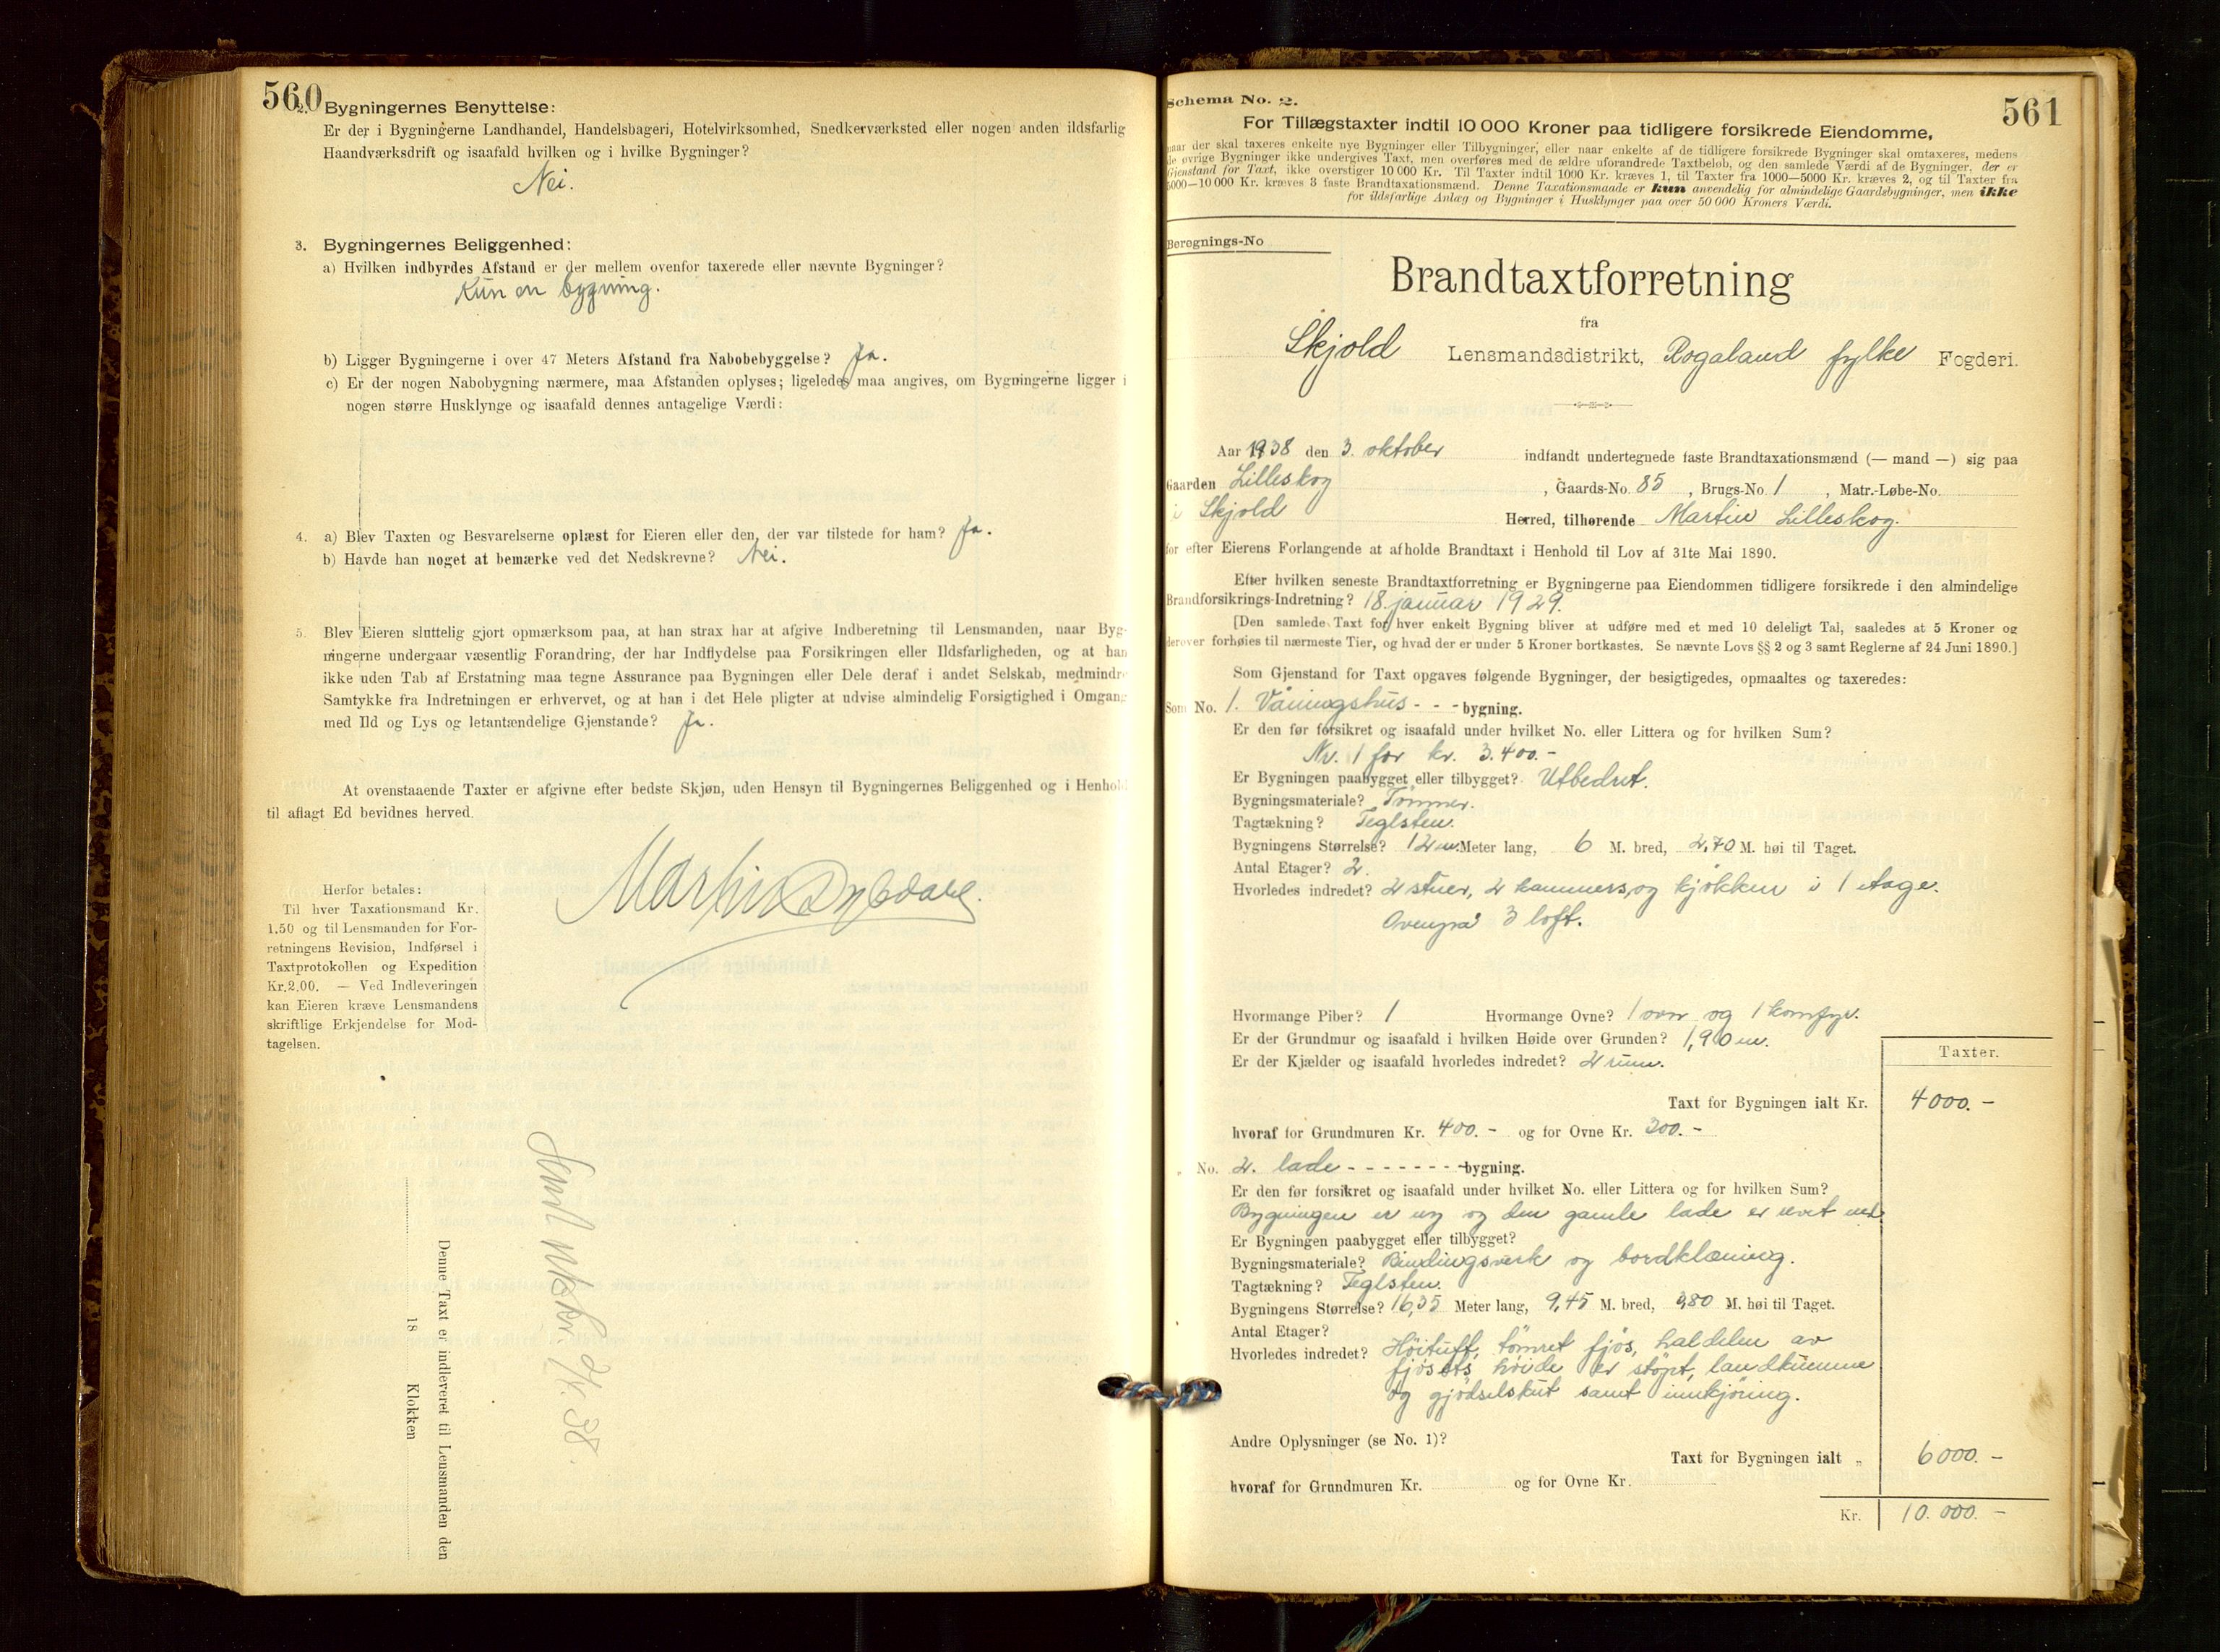 560
2. Bygningernes Benyttelse:
Er der i Bygningerne Landhandel, Handelsbageri, Hotelvirksomhed, Snedkerværksted eller nogen anden ildsfarlig
Haandværksdrift og isaafald hvilken og i hvilke Bygninger?
Nei.
3. Bygningernes Beliggenhed:
a) Hvilken indbyrdes Afstand er der mellem ovenfor taxerede eller nævnte Bygninger?
Kun en bygning.
b) Ligger Bygningerne i over 47 Meters Afstand fra Nabobebyggelse? Ja.
c) Er der nogen Nabobygning nærmere, maa Afstanden oplyses; ligeledes maa angives, om Bygningerne ligger i
nogen større Husklynge og isaafald dennes antagelige Værdi:
4. a) Blev Taxten og Besvarelserne oplæst for Eieren eller den, der var tilstede for ham? Ja.
b) Havde han noget at bemærke ved det Nedskrevne? Nei.
5. Blev Eieren sluttelig gjort opmærksom paa, at han strax har at afgive Indberetning til Lensmanden, naar Byg-
ningerne undergaar væsentlig Forandring, der har Indflydelse paa Forsikringen eller Ildsfarligheden, og at han
ikke uden Tab af Erstatning maa tegne Assurance paa Bygningen eller Dele deraf i andet Selskab, medmindre
Samtykke fra Indretningen er erhvervet, og at han i det Hele pligter at udvise almindelig Forsigtighed i Omgang
med Ild og Lys og letantændelige Gjenstande? Ja.
At ovenstaaende Taxter er afgivne efter bedste Skjøn, uden Hensyn til Bygningernes Beliggenhed og i Henhold
til aflagt Ed bevidnes herved.
Martin
Herfor betales:
Til hver Taxationsmand Kr.
1.50 og til Lensmanden for For-
retningens Revision, Indførsel i
Taxtprotokollen og Expedition
Kr. 2.00. — Ved Indleveringen
kan Eieren kræve Lensmandens
skriftlige Erkjendelse for Mod-
tagelsen.
Denne Taxt er indleveret til Lensmanden den
18 Klokken
Schema No. 2.
561
For Tillægstaxter indtil 10 000 Kroner paa tidligere forsikrede Eiendomme,
naar der skal taxeres enkelte nye Bygninger eller Tilbygninger, eller naar enkelte af de tidligere forsikrede Bygninger skal omtaxeres, medens
de øvrige Bygninger ikke undergives Taxt, men overføres med de ældre uforandrede Taxtbeløb, og den samlede Værdi af de Bygninger, der er
Gjenstand for Taxt, ikke overstiger 10 000 Kr. Til Taxter indtil 1000 Kr. kræves 1, til Taxter fra 1000—5000 Kr. kræves 2, og til Taxter fra
5000—10 000 Kr. kræves 3 faste Brandtaxationsmænd. Denne Taxationsmaade er kun anvendelig for almindelige Gaardsbygninger, men ikke
for ildsfarlige Anlæg og Bygninger i Husklynger paa over 50 000 Kroners Værdi.
Beregnings-No
Brandtaxtforretning
fra
Skjold Lensmandsdistrikt, Rogaland fylke Fogderi.
Aar 1938 den 3. oktober indfandt undertegnede faste Brandtaxationsmænd (— mand —) sig paa
Gaarden Lilleskog, Gaards-No. 85, Brugs-No. 1, Matr.-Løbe-No.
i Skjold Herred, tilhørende Martin Lilleskog.
for efter Eierens Forlangende at afholde Brandtaxt i Henhold til Lov af 31te Mai 1890.
Efter hvilken seneste Brandtaxtforretning er Bygningerne paa Eiendommen tidligere forsikrede i den almindelige
Brandforsikrings-Indretning? 18. januar 1929.
[Den samlede Taxt for hver enkelt Bygning bliver at udføre med et med 10 deleligt Tal, saaledes at 5 Kroner og
derover forhøies til nærmeste Tier, og hvad der er under 5 Kroner bortkastes. Se nævnte Lovs §§ 2 og 3 samt Reglerne af 24 Juni 1890.]
Som Gjenstand for Taxt opgaves følgende Bygninger, der besigtigedes, opmaaltes og taxeredes:
Som No. 1. Våningshus - - - bygning.
Er den før forsikret og isaafald under hvilket No. eller Littera og for hvilken Sum?
Nr. 1 for kr. 3.400.-
Er Bygningen paabygget eller tilbygget? Utbedret.
Bygningsmateriale? Tømmer.
Tagtækning? Teglsten.
Bygningens Størrelse? 12 m. Meter lang, 6 M. bred, 2,70 M. høi til Taget.
Antal Etager? 2.
Hvorledes indredet? 2 stuer, 2 kammers, og kjøkken i 1 etage.
Ovenpå 3 loft.
Hvormange Piber? 1 Hvormange Ovne? 1 ovn og 1 komfyr.
Er der Grundmur og isaafald i hvilken Høide over Grunden? 1,90 m.
Er der Kjælder og isaafald hvorledes indredet? 2 rum.
Taxter.
Taxt for Bygningen ialt Kr. 4000.-
hvoraf for Grundmuren Kr. 400.- og for Ovne Kr. 200.-
„ No. 2. lade - - - - - - - bygning.
Er den før forsikret og isaafald under hvilket No. eller Littera og for hvilken Sum?
Bygningen er ny og den gamle lade er revet ned.
Er Bygningen paabygget eller tilbygget?
Bygningsmateriale? Bindingsverk og bordklæning.
Tagtækning? Teglsten.
Bygningens Størrelse? 16,35 Meter lang, 9,45 M. bred, 3,80 M. høi til Taget.
Antal Etager?
Hvorledes indredet? Høituft, tømret fjøs, haldelen av
fjøsets høide er støpt, landkumme
og gjødselskut samt innkjøring.
Andre Oplysninger (se No. 1)?
Taxt for Bygningen ialt „ 6000.-
hvoraf for Grundmuren Kr. og for Ovne Kr.
Kr. 10.000.-